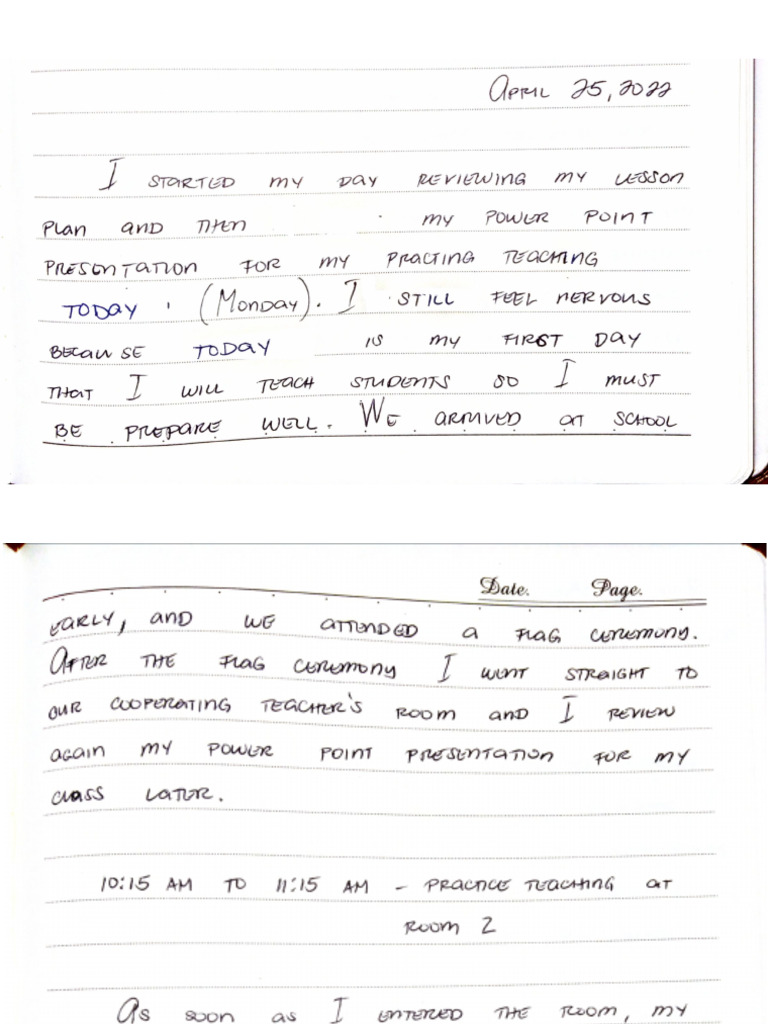 April 25, 2022
I started my day reviewing my lesson
plan and then my power point
presentation for my practing teaching
today (Monday). I still feel nervous
because today is my first day
that I will teach students so I must
be prepare well. We arrived at school
Date. Page.
early, and we attended a flag ceremony.
After the flag ceremony I went straight to
our cooperating teacher's room and I review
again my power point presentation for my
class later.
10:15 AM to 11:15 AM - Practice teaching at
room 2
As soon as I entered the room, my